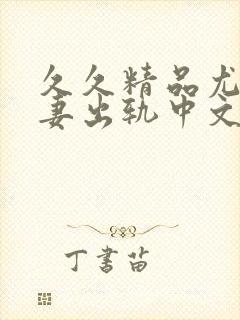 久久精品尤
妻出轨中文
丁書苗